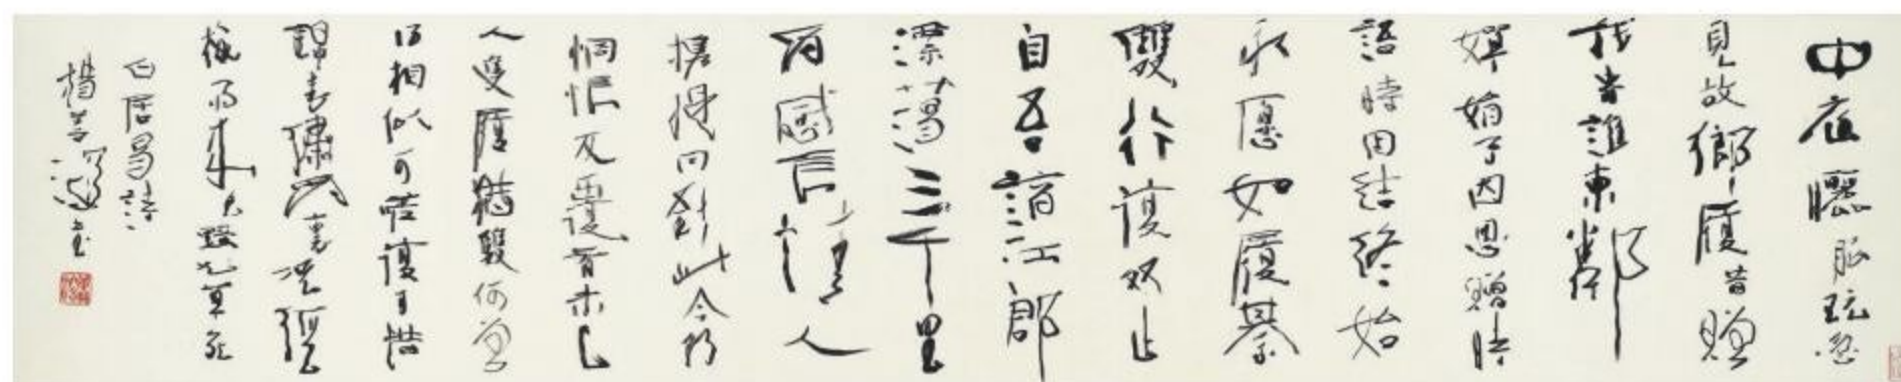 中庭曬服玩忽
見故鄉履昔贈
我者誰東鄰
嬋娟子因思贈時
語時用結終始
永愿如履綦
雙行復双止
自吾謫江郡
漂蕩三千里
為感長情人
攜提同到此今朝
惆悵反覆看未已
人隻履猶雙何曾
得相似可嗟復可惜
錦表繡為裏況經
梅雨来色黯花草死
白居易詩
楊書